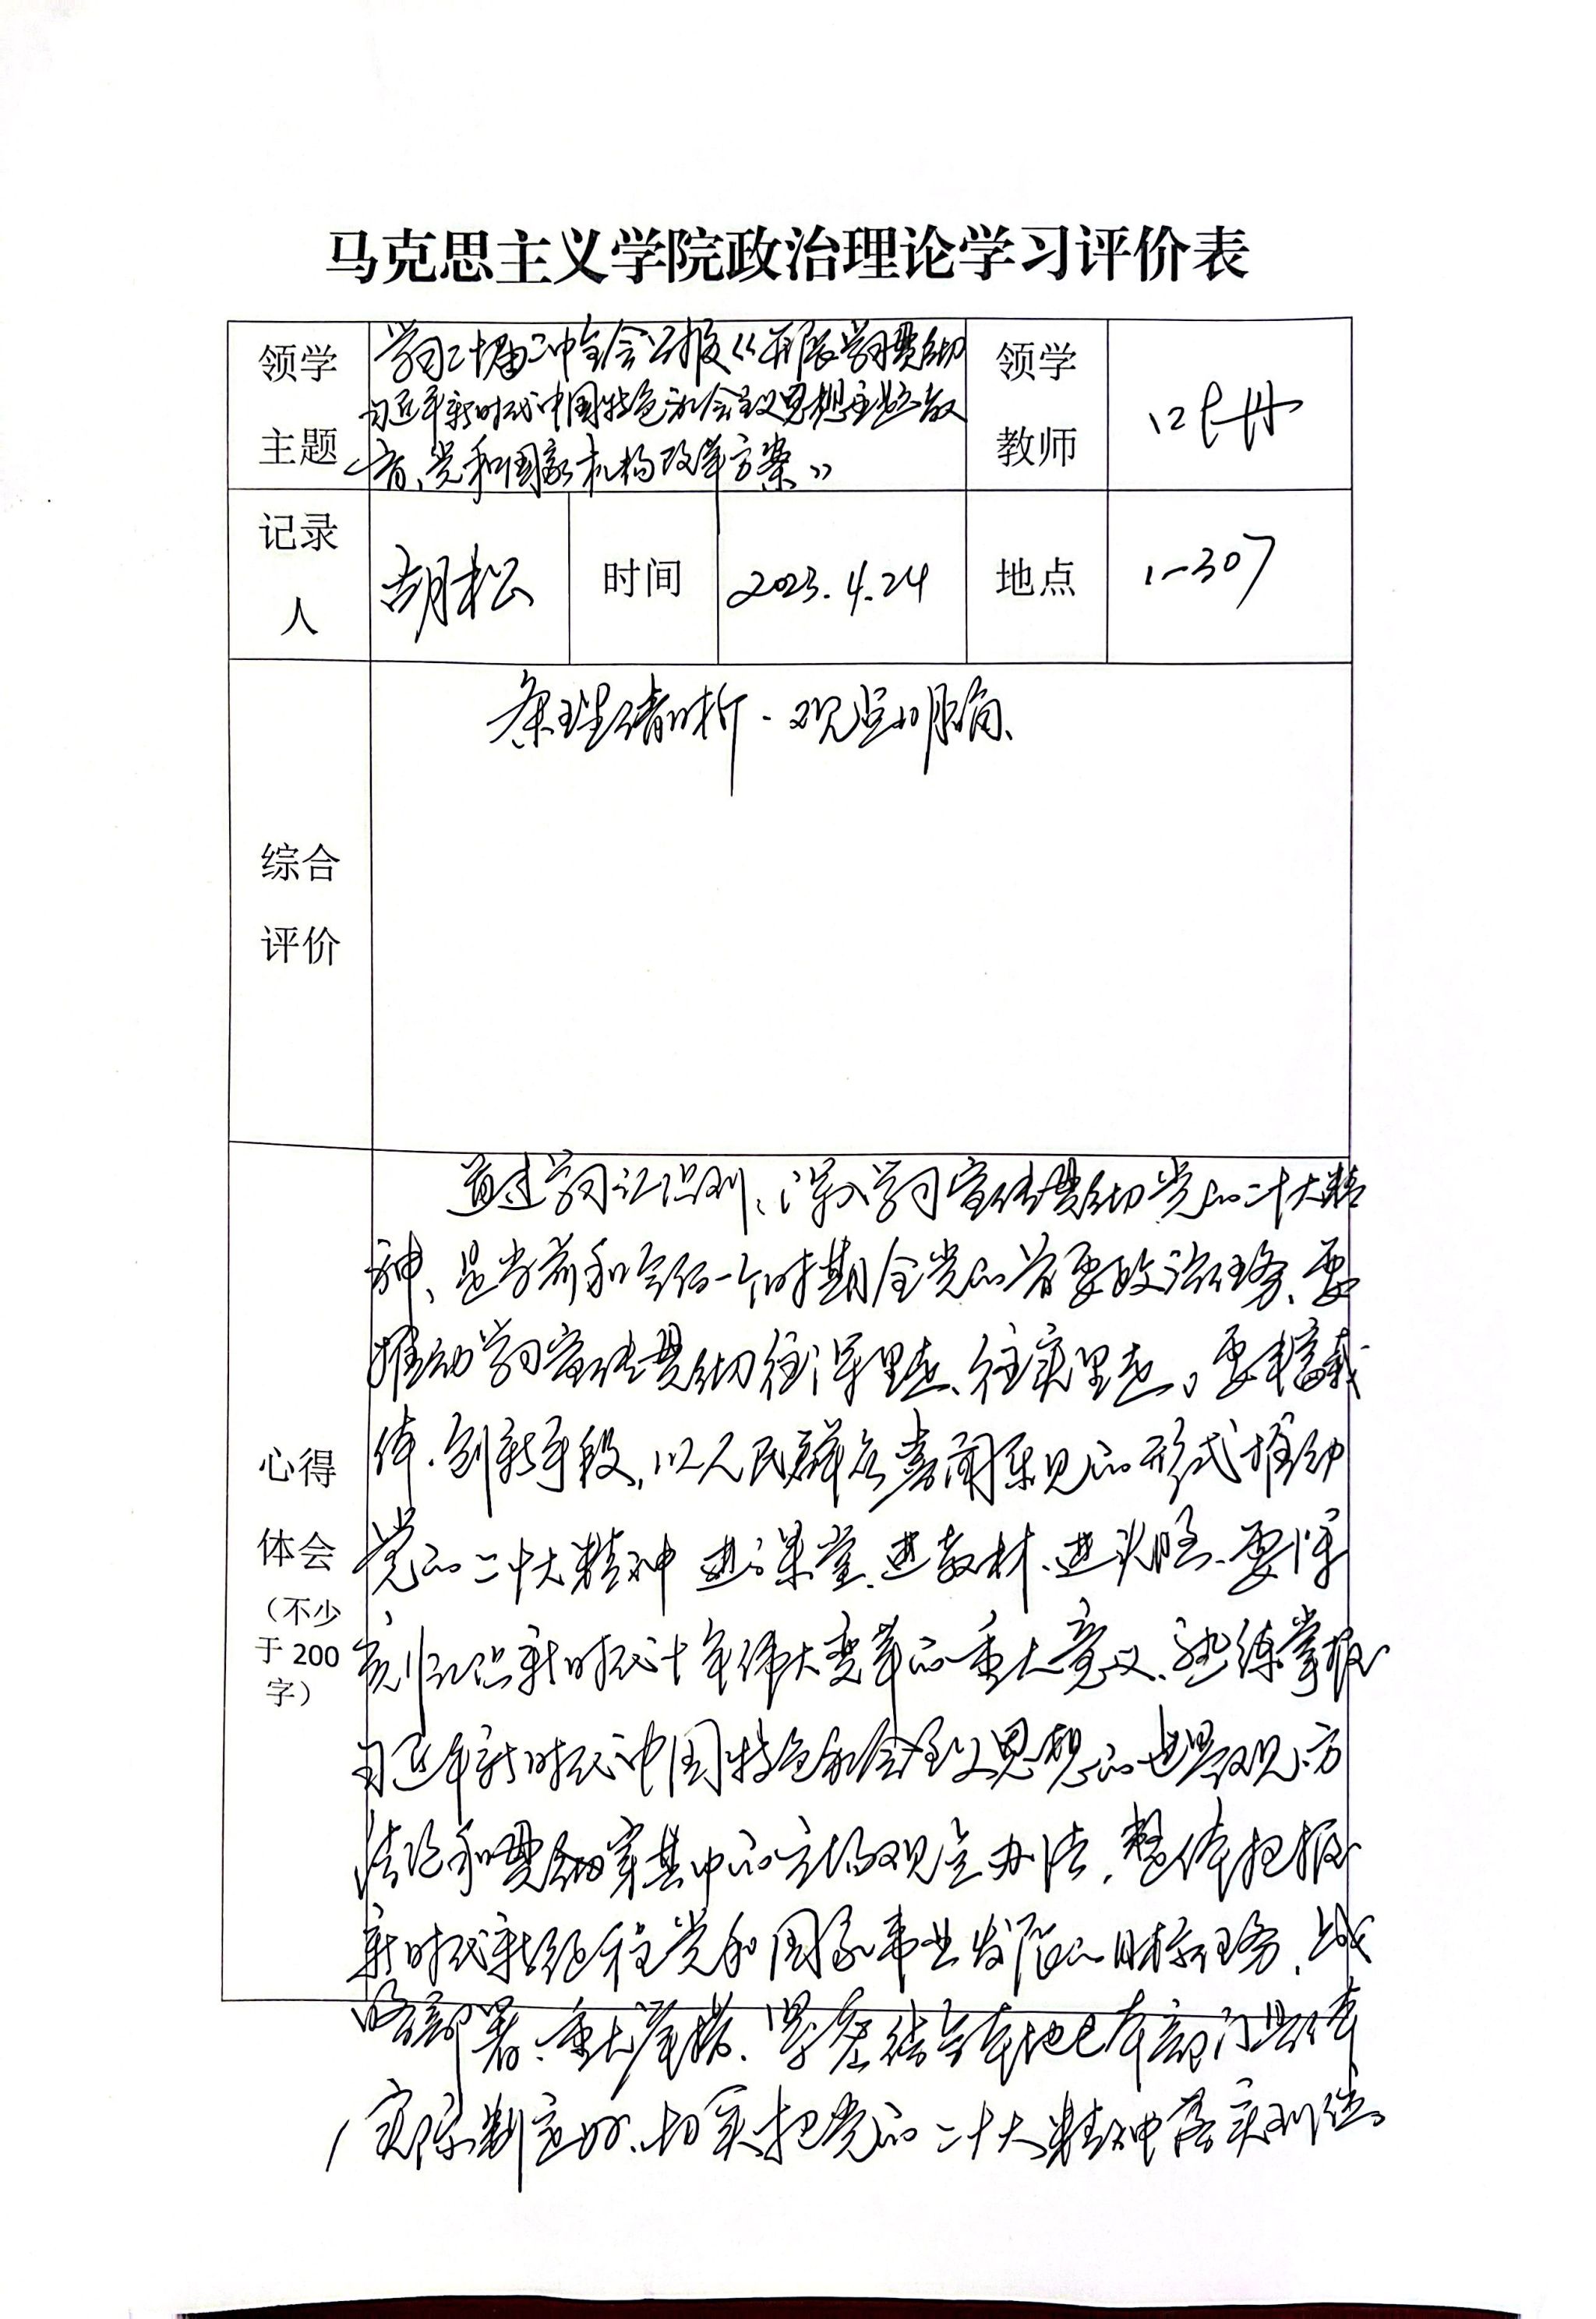 马克思主义学院政治理论学习评价表
领学主题
学习二十届二中全会公报《开展学习贯彻
习近平新时代中国特色社会主义思想主题教
育、党和国家机构改革方案》
领学教师
记录人
胡松
时间
2023.4.24
地点
1-307
综合评价
条理清晰、观点明确、
心得体会（不少于200字）
通过学习认识到，深入学习宣传贯彻党的二十大精
神、是当前和今后一个时期全党的首要政治任务、要
推动学习宣传贯彻往深里走、往实里走，要丰富载
体、创新手段，以人民群众喜闻乐见的形式推动
党的二十大精神进课堂、进教材、进头脑、要深
刻认识新时代十年伟大变革的重大意义、熟练掌握
习近平新时代中国特色社会主义思想的世界观、方
法论和贯彻穿其中的立场观点办法，整体把握
新时代新征程党和国家事业发展的目标任务、战
略部署、重大举措、要结合本地区本部门具体
实际制定好、切实把党的二十大精神落实到位。